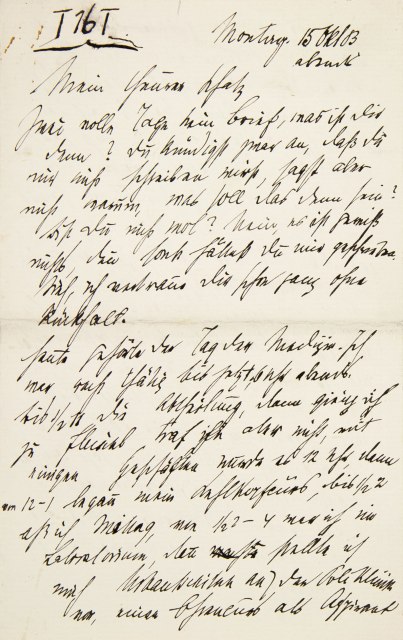 I 76 I
Montag. 15 Okt 83
abends
Mein theurer Schatz
Zwei volle Tage kein Brief, was ist Dir
denn? Du kündigst zwar an, daß du
mir nicht schreiben wirst, sagst aber
nicht warum, was soll das denn sein?
Bist Du nicht wol? Nein, es ist gewiß
nichts, denn sonst hättest Du mir geschrieben.
Sieh, ich vertraue Dir schon ganz ohne
Rückhalt.
Heute gehörte der Tag der Medizin. Ich
war recht bis jetzt Uhr abends.
bis 1/2 11 die Abtheilung, dann ging ich
zu Fleischl, traf ihn aber nicht, mit
einigen Geschäften wurde es 12 Uhr dann
von 12-1 begann mein Kehlkopfcurs, bis 1/2 2
aß ich Mittag, von 1/2 2 - 4 war ich im
Laboratorium, dann stellte ich
mich Urbantschitsch an der Poliklinik
vor, einen Ohrencurs als Aspirant